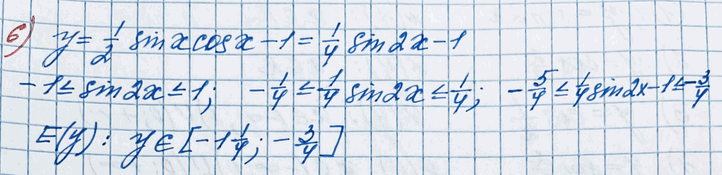 6) y = 1/2 sinx cosx − 1 = 1/4 sin2x − 1
−1 ≤ sin2x ≤ 1; −1/4 ≤ 1/4 sin2x ≤ 1/4; −5/4 ≤ 1/4 sin2x − 1 ≤ −3/4
E(y): y ∈ [−1 1/4; −3/4]